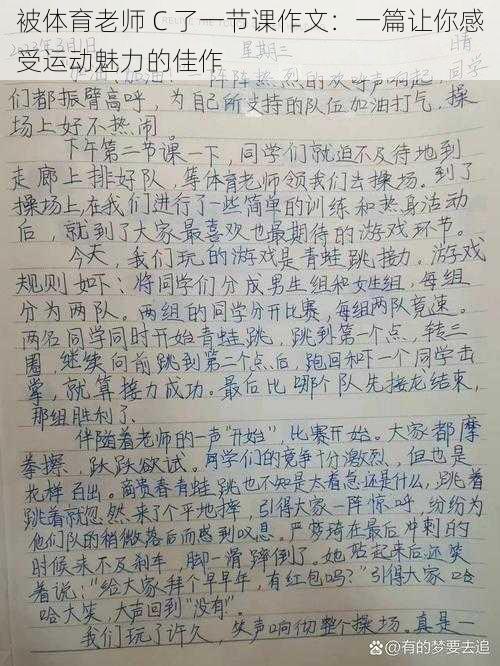 被体育老师 C 了一节课作文：一篇让你感
受运动魅力的佳作
星期三 晴
阵阵热烈的欢呼声响起，同学
们都振臂高呼，为自己所支持的队伍加油打气，操
场上好不热闹。
下午第二节课一下，同学们就迫不及待地到
走廊上排好队，等体育老师领我们去操场。到了
操场上，在我们进行了一些简单的训练和热身活动
后，就到了大家最喜欢也最期待的游戏环节。
今天，我们玩的游戏是青蛙跳接力。游戏
规则如下：将同学们分成男生组和女生组，每组
分为两队。两组的同学分开比赛，每组两队竞速。
两名同学同时开始青蛙跳，跳到第一个点，转三
圈，继续向前跳到第二个点后，跑回和下一个同学击
掌，就算接力成功。最后比哪个队先接龙结束，
那组胜利了。
伴随着老师的一声“开始”，比赛开始。大家都摩
拳擦，跃跃欲试。同学们的竞争十分激烈，但也是
花样百出。商贵春青蛙跳也不知是太着急还是什么，跳着
跳着就忽然来了个平地摔，引得大家一阵惊呼，纷纷为
他们队的稍微落后而感到叹息。严梦琦在最后冲刺的
时候来不及刹车，脚一滑蹿倒了。她站起来后还笑
着说：“给大家拜个早早年，有红包吗？”引得大家哈
哈大笑，大声回到“没有”。
我们玩了许久，笑声响彻整个操场。真是一
@有的梦要去追